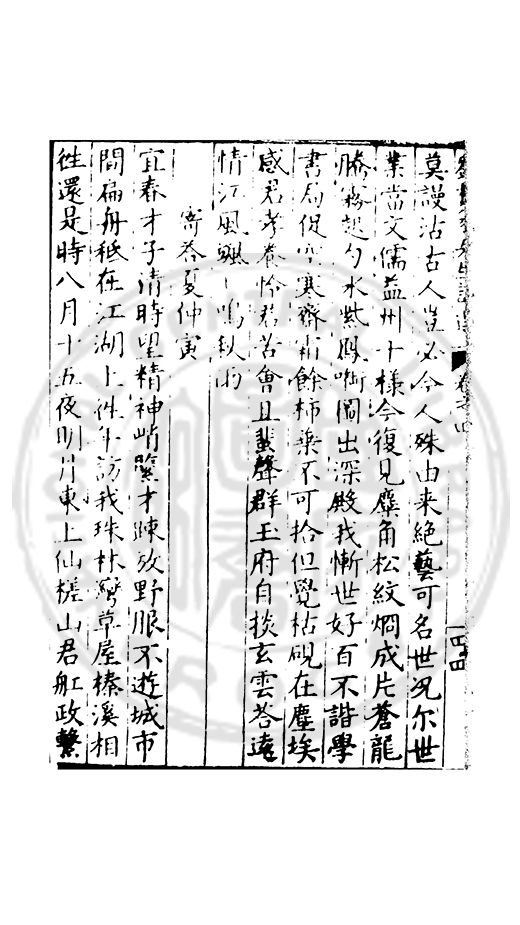 卷之四
一四四
莫謾沽古人豈必今人殊由来絶藝可名世况尔世
業當文儒益州十樣今復見麋角松紋爛成片蒼龍
騰霧起勺水紫鳳啣圖出深殿我慚世好百不諧學
書局促空寒齋霜餘柿葉不可拾但覺枯硯在塵埃
感君孝養怜君苦會且蜚聲群玉府自掞玄雲荅遠
情江風颯〻鳴秋雨
寄荅夏仲寅
宜春才子清時望精神峭 才疎放野服不遊城市
間扁舟秪在江湖上 年訪我珠林灣草屋榛溪相
往還是時八月十五夜明月東上仙槎山君舡政繫